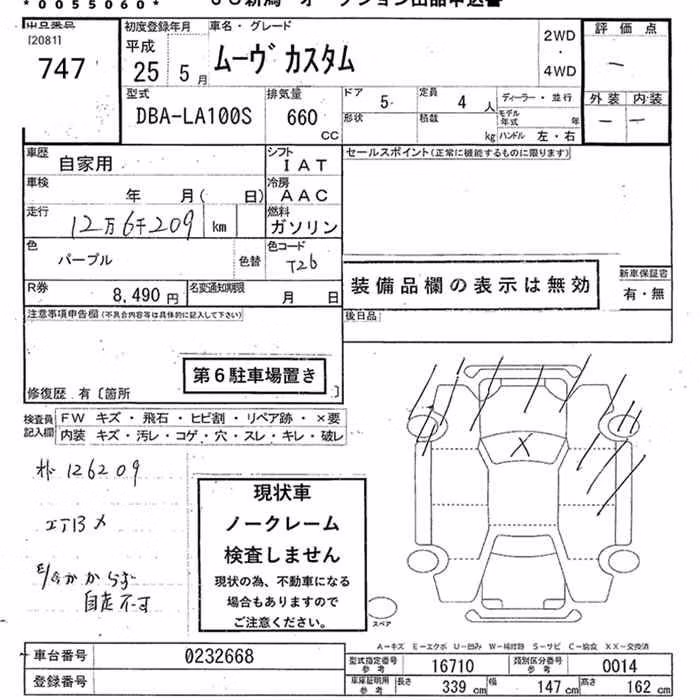 *0055060*
出品番号
[2081]
747
初度登録年月
平成
25 5月
車名・グレード
ムーヴ カスタム
2WD
・
4WD
評価点
―
外装 内装
― ―
型式
DBA-LA100S
排気量
660
CC
ドア
5
定員
4人
ディーラー・並行
形状
積載
kg
モデル年式 年
ハンドル 左・右
車歴
自家用
シフト
IAT
セールスポイント(正常に機能するものに限ります)
車検
年 月( 日)
冷房
AAC
走行
12万6千209 km
燃料
ガソリン
色
パープル
色替
色コード
T26
装備品欄の表示は無効
新車保証書
有・無
R券
8,490円
名変通知期限
月 日
注意事項申告欄(不具合内容等は具体的に記入して下さい)
後日品
第6駐車場置き
修復歴 有〔箇所 〕
検査員
記入欄
FW キズ・飛石・ヒビ割・リペア跡・×要
内装 キズ・汚レ・コゲ・穴・スレ・キレ・破レ
126209
X
現状車
ノークレーム
検査しません
現状の為、不動車になる
場合もありますので
ご注意ください。
自走不可
スペア
A-キズ E-エクボ U-凹み W-補修跡 S-サビ C-腐食 XX-交換済
車台番号
0232668
登録番号
型式指定番号
参考
16710
類別区分番号
参考
0014
車庫証明用
参考
長さ
339 cm
幅
147 cm
高さ
162 cm